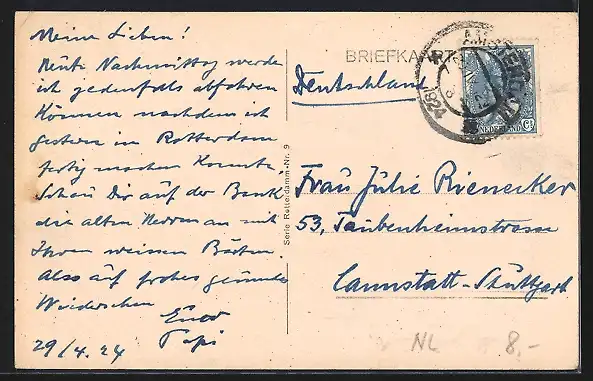 Meine Lieben!
Heute Nachmittag werde
ich jedenfalls abfahren
können nachdem ich
gestern in Rotterdam
fertig machen konnte.
Schau Dir auf der Bank
die alten Herren an mit
Ihren weissen Bärten
Also auf frohes gesundes
Wiedersehen
Euer
Papi
29/4.24
BRIEFKAART
Deutschland
AMSTERDAM
1924
NEDERLAND
Serie Rotterdamm-Nr. 9
Frau Julie Rienecker
53, Taubenheimstrasse
Cannstatt-Stuttgart
NL 8.-